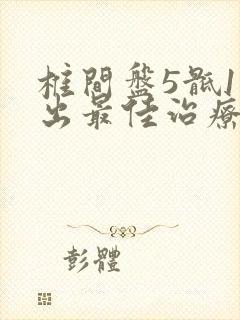 柱間盤5骶1
出最佳治療
彭體